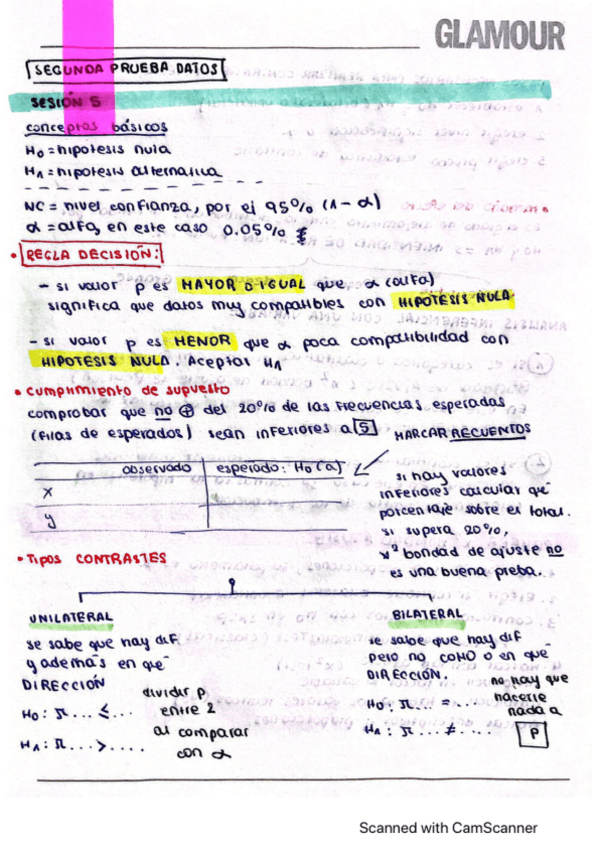 GLAMOUR
SEGUNDA PRUEBA DATOS
SESIÓN 5
conceptos básicos
H0 = hipotesis nula
H1 = hipotesis alternativa
NC = nivel confianza, por ej 95% (1 - α)
α = alfa, en este caso 0.05%
• REGLA DECISIÓN:
- si valor p es MAYOR O IGUAL que α (alfa)
significa que datos muy compatibles con HIPOTESIS NULA
- si valor p es MENOR que α poca compatibilidad con
HIPOTESIS NULA. Aceptar H1
• cumplimiento de supuesto
comprobar que no ⊕ del 20% de las frecuencias esperadas
(filas de esperados) sean inferiores a 5
MARCAR RECUENTOS
observado esperado: H0 (a)
x
y
si hay valores
inferiores calcular que
porcentaje sobre el total.
si supera 20%,
x² bondad de ajuste no
es una buena preba.
• Tipos CONTRASTES
UNILATERAL
se sabe que hay dif
y además en qué
DIRECCIÓN
H0: π... ≤...
H1: π... >....
dividir p
entre 2
al comparar
con α
BILATERAL
se sabe que hay dif
pero no COMO o en qué
DIRECCIÓN.
H0: π... =....
H1: π... ≠....
no hay que
hacerle
nada a
P
Scanned with CamScanner